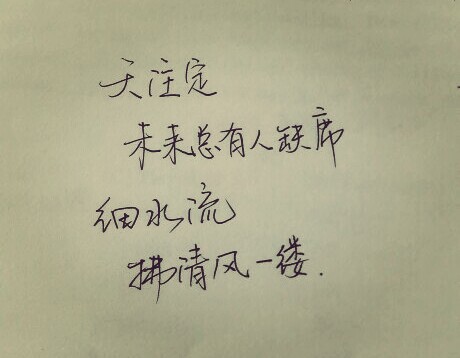 天注定
未来总有人缺席
细水流
拂清风一缕.